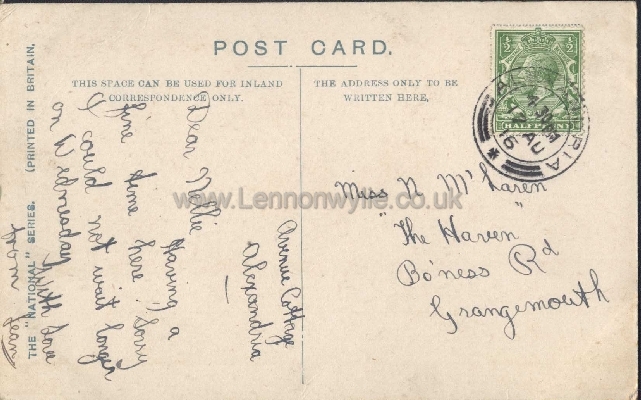 POST CARD.
THIS SPACE CAN BE USED FOR INLAND
CORRESPONDENCE ONLY.
THE ADDRESS ONLY TO BE
WRITTEN HERE,
THE "NATIONAL" SERIES. (PRINTED IN BRITAIN.
Avenue Cottage
Alexandria
Dear Nellie
Having a
fine time here. Sorry
I could not wait longer
on Wednesday. With love
from
Jean
Miss N. McLaren
"The Haven"
Bo'ness Rd
Grangemouth
½ ½
HALFPENNY
ALEXANDRIA
4 30 PM
AU
16
www.Lennonwylie.co.uk